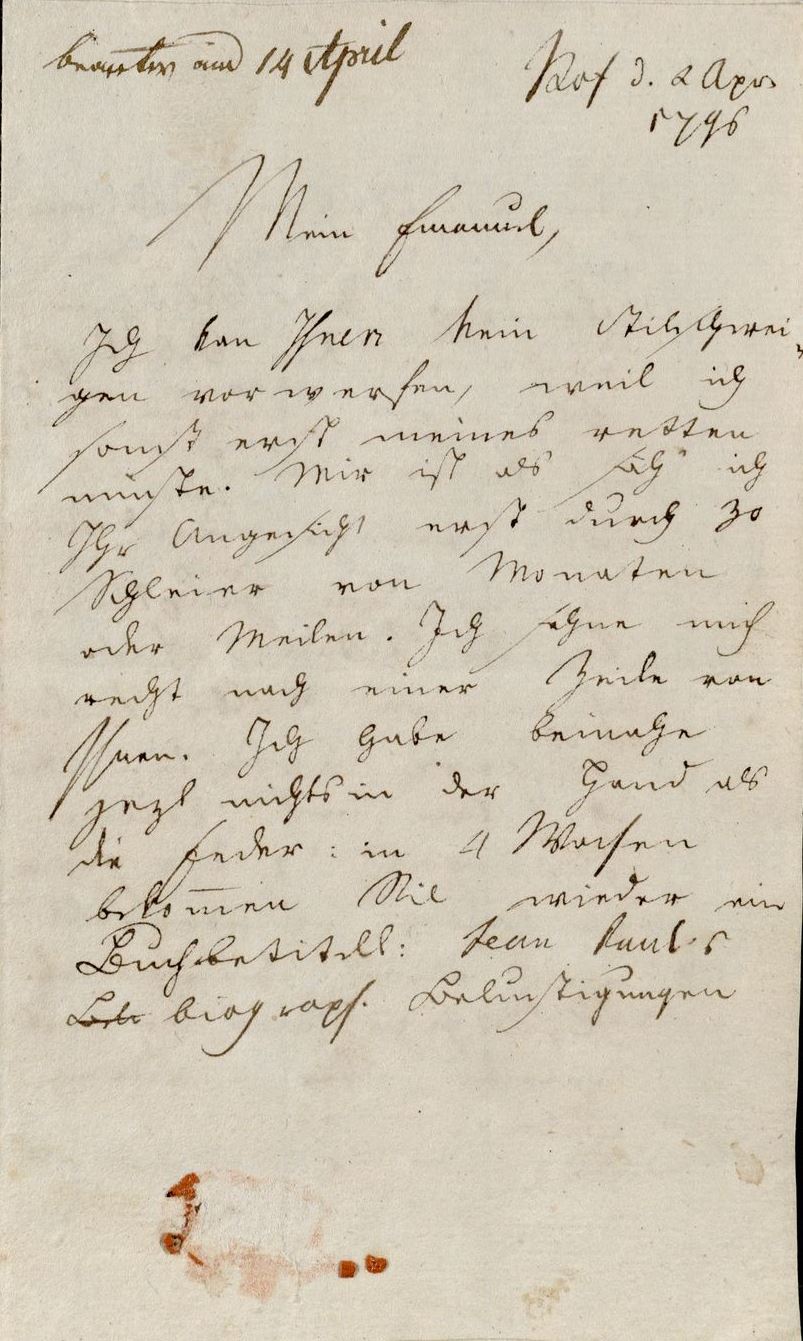 beantw am 14 April
Hof d. 2 Apr.
1796
Mein Emanuel,
Ich kan Ihnen kein Stilschwei-
gen vorwerfen, weil ich
sonst erst meines retten
müste. Mir ist als säh' ich
Ihr Angesicht erst durch 30
Schleier von Monaten
oder Meilen. Ich sehne mich
recht nach einer Zeile von
Ihnen. Ich habe beinahe
jezt nichts in der Hand als
die Feder: in 4 Wochen
bekom̄en Sie wieder ein
Buch betitelt: Jean Paul's
biograph. Belustigungen